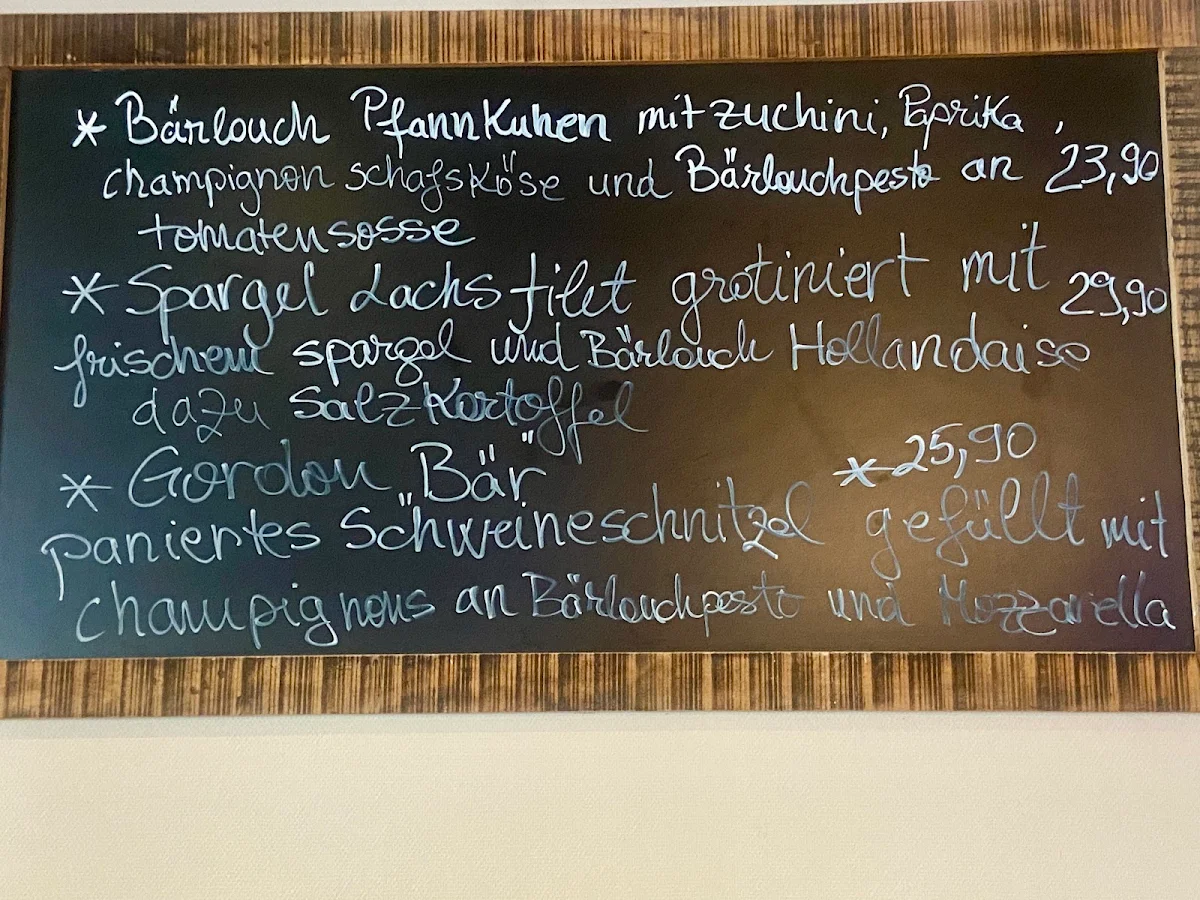 * Bärlouch Pfannkuhen mit zuchini, Paprika,
champignon schafsköse und Bärlouchpesto an 23,90
tomatensosse
* Spargel Lachsfilet grotiniert mit 29,90
frischem spargel und Bärlouch Hollandaise
dazu Salzkortoffel
* Gordon „Bär" *25,90
paniertes Schweineschnitzel gefüllt mit
champignons an Bärlouchpesto und Mozzarella